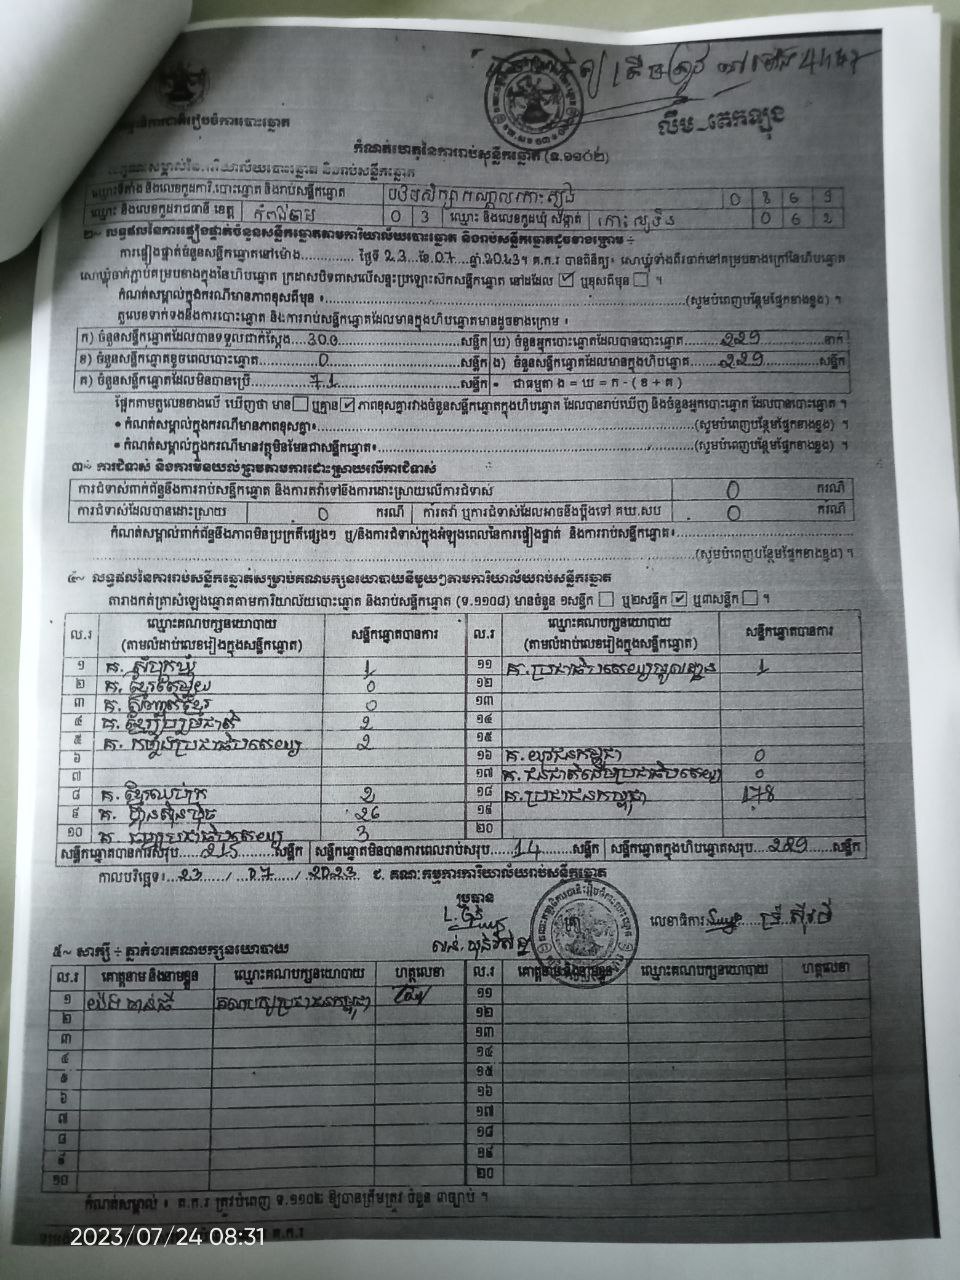 លឹម_តេកឡុង
កំណត់ហេតុនៃការរាប់សន្លឹកឆ្នោត (ទ.១១០២)
ឈ្មោះទីតាំង និងលេខកូដការិ.បោះឆ្នោត និងរាប់សន្លឹកឆ្នោត 0 8 6 9
ឈ្មោះ និងលេខកូដរាជធានី ខេត្ត កំពង់ចាម 0 3 ឈ្មោះ និងលេខកូដឃុំ សង្កាត់ 0 6 2
២~ លទ្ធផលនៃការផ្ទៀងផ្ទាត់ចំនួនសន្លឹកឆ្នោតតាមការិយាល័យបោះឆ្នោត និងរាប់សន្លឹកឆ្នោតដូចខាងក្រោម ÷
ការផ្ទៀងផ្ទាត់ចំនួនសន្លឹកឆ្នោតនៅម៉ោង............. ថ្ងៃទី 23 ខែ.07 ឆ្នាំ.2023។ គ.ក.រ បានពិនិត្យ÷ សោឃ្លុំទាំងពីរចាក់នៅគម្របខាងក្រៅនៃហិបឆ្នោត
សោឃ្លុំចាក់ភ្ជាប់គម្របខាងក្នុងនៃហិបឆ្នោត ក្រដាសបិទពាសលើសន្ទះប្រឡោះស៊កសន្លឹកឆ្នោត នៅដដែល ☑ ឬខុសពីមុន ☐ ។
កំណត់សម្គាល់ក្នុងករណីមានភាពខុសពីមុន ៖..........(សូមបំពេញបន្ថែមផ្នែកខាងខ្នង) ។
តួលេខទាក់ទងនឹងការបោះឆ្នោត និងការរាប់សន្លឹកឆ្នោតដែលមានក្នុងហិបឆ្នោតមានដូចខាងក្រោម ៖
ក) ចំនួនសន្លឹកឆ្នោតដែលបានទទួលជាក់ស្តែង....300..........សន្លឹក ឃ) ចំនួនអ្នកបោះឆ្នោតដែលបានបោះឆ្នោត..........229..........នាក់
ខ) ចំនួនសន្លឹកឆ្នោតខូចពេលបោះឆ្នោត..........0..........សន្លឹក ង) ចំនួនសន្លឹកឆ្នោតដែលមានក្នុងហិបឆ្នោត..........229..........សន្លឹក
គ) ចំនួនសន្លឹកឆ្នោតដែលមិនបានប្រើ..........71..........សន្លឹក • ជាធម្មតា ង = ឃ = ក - ( ខ + គ )
ផ្អែកតាមតួលេខខាងលើ ឃើញថា មាន ☐ ឬគ្មាន ☑ ភាពខុសគ្នារវាងចំនួនសន្លឹកឆ្នោតក្នុងហិបឆ្នោត ដែលបានរាប់ឃើញ និងចំនួនអ្នកបោះឆ្នោត ដែលបានបោះឆ្នោត ។
• កំណត់សម្គាល់ក្នុងករណីមានភាពខុសគ្នា៖..........(សូមបំពេញបន្ថែមផ្នែកខាងខ្នង) ។
• កំណត់សម្គាល់ក្នុងករណីមានវត្ថុមិនមែនជាសន្លឹកឆ្នោត៖..........(សូមបំពេញបន្ថែមផ្នែកខាងខ្នង) ។
៣~ ការជំទាស់ និងការមិនយល់ព្រមតាមការដោះស្រាយលើការជំទាស់
ការជំទាស់ពាក់ព័ន្ធនឹងការរាប់សន្លឹកឆ្នោត និងការតវ៉ាទៅនឹងការដោះស្រាយលើការជំទាស់ 0 ករណី
ការជំទាស់ដែលបានដោះស្រាយ 0 ករណី ការតវ៉ា ឬការជំទាស់ដែលអាចនឹងប្តឹងទៅ គឃ.សប 0 ករណី
កំណត់សម្គាល់ពាក់ព័ន្ធនឹងភាពមិនប្រក្រតីផ្សេងៗ ឬ/និងការជំទាស់ក្នុងអំឡុងពេលនៃការផ្ទៀងផ្ទាត់ និងការរាប់សន្លឹកឆ្នោត៖..........
(សូមបំពេញបន្ថែមផ្នែកខាងខ្នង) ។
៤~ លទ្ធផលនៃការរាប់សន្លឹកឆ្នោតសម្រាប់គណបក្សនយោបាយនីមួយៗតាមការិយាល័យរាប់សន្លឹកឆ្នោត
តារាងកត់ត្រាសំឡេងឆ្នោតតាមការិយាល័យបោះឆ្នោត និងរាប់សន្លឹកឆ្នោត (ទ.១១០៨) មានចំនួន ១សន្លឹក ☐ ឬ២សន្លឹក ☑ ឬ៣សន្លឹក ☐ ។
ល.រ ឈ្មោះគណបក្សនយោបាយ (តាមលំដាប់លេខរៀងក្នុងសន្លឹកឆ្នោត) សន្លឹកឆ្នោតបានការ ល.រ ឈ្មោះគណបក្សនយោបាយ (តាមលំដាប់លេខរៀងក្នុងសន្លឹកឆ្នោត) សន្លឹកឆ្នោតបានការ
១ គ. សំបុកឃ្មុំ 1 ១១ 1
២ 0 ១២
៣ 0 ១៣
៤ 2 ១៤
៥ គ. កម្លាំងប្រជាធិបតេយ្យ 2 ១៥
៦ ១៦ គ. យុវជនកម្ពុជា 0
៧ ១៧ 0
៨ គ. ខ្មែរឈប់ក្រ 2 ១៨ គ. ប្រជាជនកម្ពុជា 178
៩ គ. ហ៊្វុនស៊ិនប៉ិច 26 ១៩
១០ 3 ២០
សន្លឹកឆ្នោតបានការសរុប.....215.......សន្លឹក សន្លឹកឆ្នោតមិនបានការពេលរាប់សរុប.....14.......សន្លឹក សន្លឹកឆ្នោតក្នុងហិបឆ្នោតសរុប.....229......សន្លឹក
កាលបរិច្ឆេទ៖...23...../...07..../....2023 ជ. គណៈកម្មការការិយាល័យរាប់សន្លឹកឆ្នោត
ប្រធាន
លេខាធិការ
៥~ សាក្សី ÷ ភ្នាក់ងារគណបក្សនយោបាយ
ល.រ គោត្តនាម និងនាមខ្លួន ឈ្មោះគណបក្សនយោបាយ ហត្ថលេខា ល.រ គោត្តនាម និងនាមខ្លួន ឈ្មោះគណបក្សនយោបាយ ហត្ថលេខា
១ គណបក្សប្រជាជនកម្ពុជា ១១
២ ១២
៣ ១៣
៤ ១៤
៥ ១៥
៦ ១៦
៧ ១៧
៨ ១៨
៩ ១៩
១០ ២០
កំណត់សម្គាល់ ៖ គ.ក.រ ត្រូវបំពេញ ទ.១១០២ ឱ្យបានត្រឹមត្រូវ ចំនួន ៣ច្បាប់ ។
2023/07/24 08:31